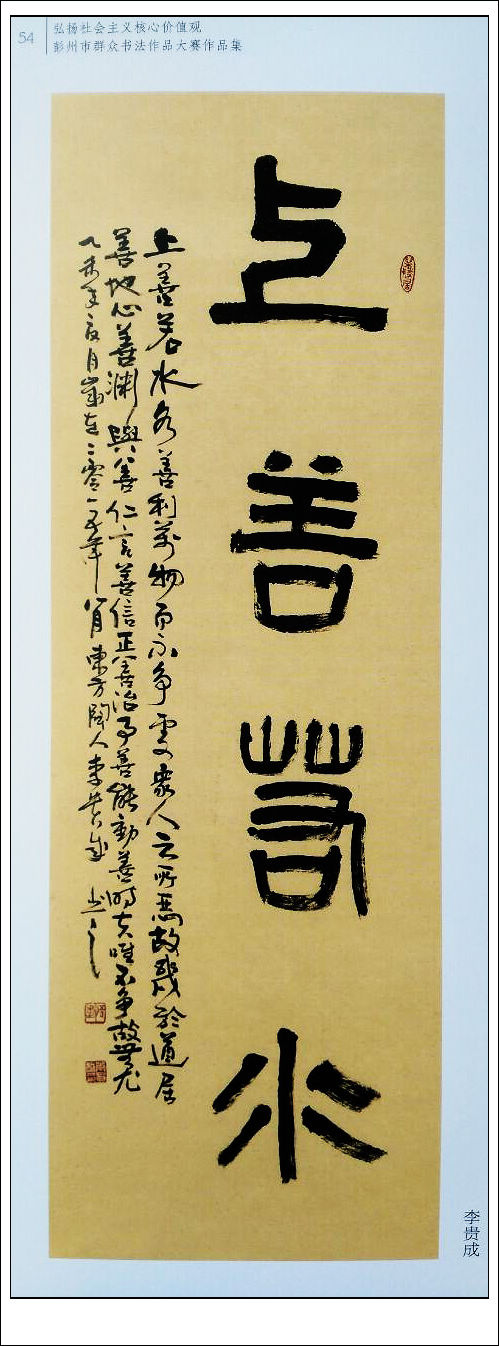 54
弘扬社会主义核心价值观
彭州市群众书法作品大赛作品集
上善若水
上善若水水善利萬物而不争處衆人之所惡故幾於道居
善地心善淵與善仁言善信正善治事善能動善時夫唯不争故無尤
乙未年夏月歲在二零一五年八月東方閑人李貴成书之
李贵成